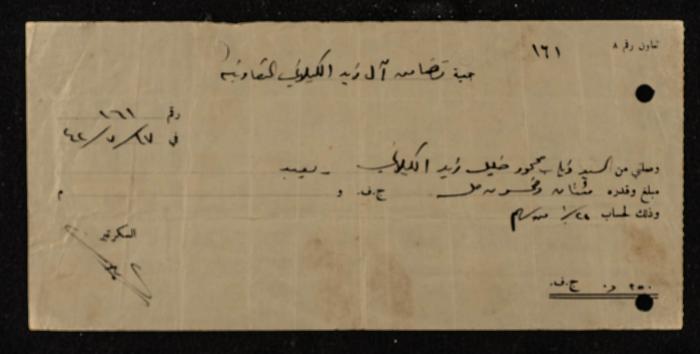 تعاون رقم ٨
١٦١
جمعية تضامن آل زيد الكيلاني التعاونية
رقم ١٦١
في ١٧/٧/٤٢
وصلني من السيد ذياب محمود خليل زيد الكيلاني - يعبد
مبلغ وقدره مئتان وخمسون مل ج.ف. و م
وذلك لحساب
السكرتير
٢٥٠ و٠ ج.ف.